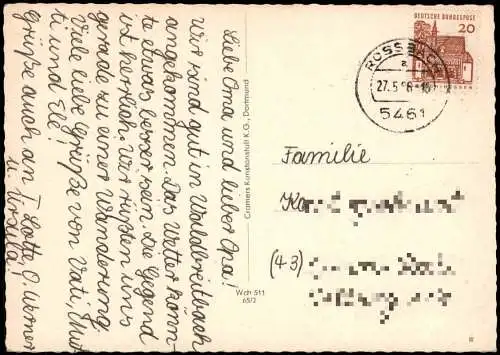 Liebe Oma und lieber Opa!
Wir sind gut in Waldbreitbach
angekommen. Das Wetter könn-
te etwas besser sein. Die Gegend
ist herrlich. Wir rüsten uns
gerade zu einer Wanderung.
Viele liebe Grüße von Vati, Mut
ti und Ele!
Grüße auch an T. Lotte, O. Werner
u. Ursula!
Cramers Kunstanstalt K.G., Dortmund
Wdh 511
65/2
DEUTSCHE BUNDESPOST
20
ROSSBACH
a
27.5
5461
Familie
(43)